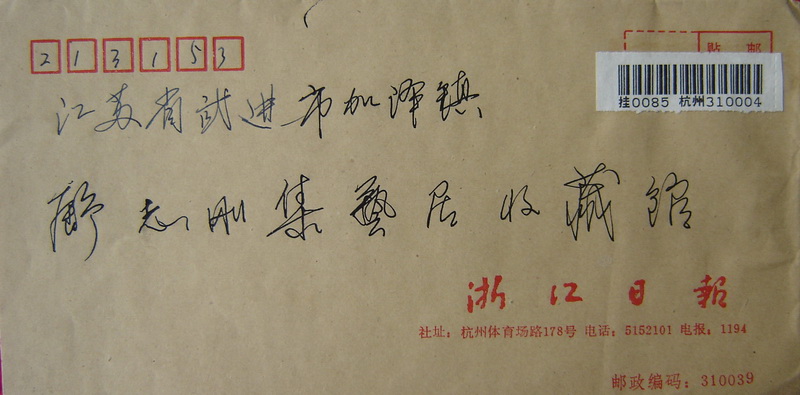 213153
贴 邮
挂0085 杭州310004
江苏省武进市加泽镇
志刚集艺居收藏馆
浙江日報
社址：杭州体育场路178号 电话：5152101 电报：1194
邮政编码：310039